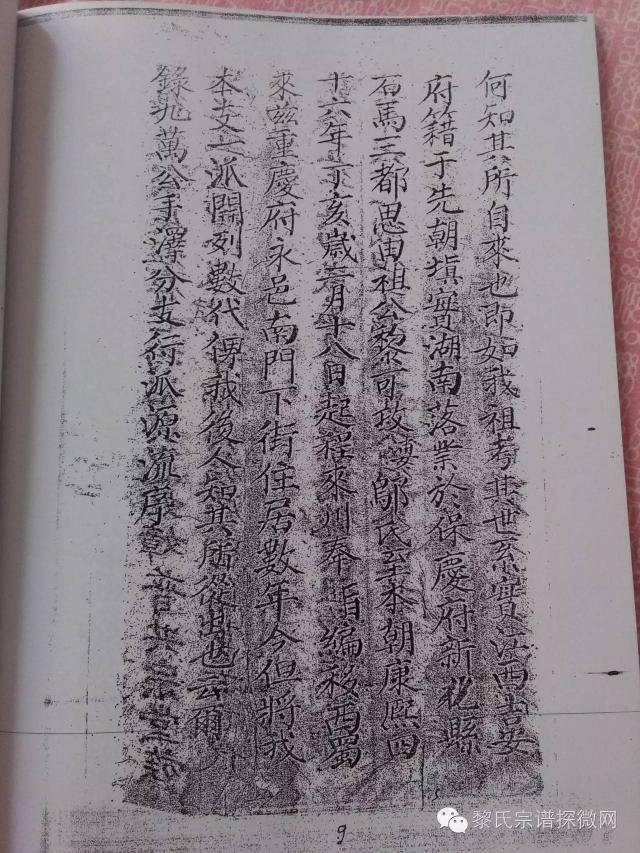 何知其所自來也即如我祖考其世系實江西吉安
府籍于先朝填實湖南落業於保慶府新化縣
石馬三都思由祖公黎可玫婆鄔氏至本朝康熙四
十六年丁亥歲二月十八日起程來川奉旨編移西蜀
來兹重慶府永邑南門下街住居數年今但將我
本支之派開列數代俾誠後人知其所從出也云爾
錄兆萬公手澤分支衍派源流序
9
黎氏宗谱探微网